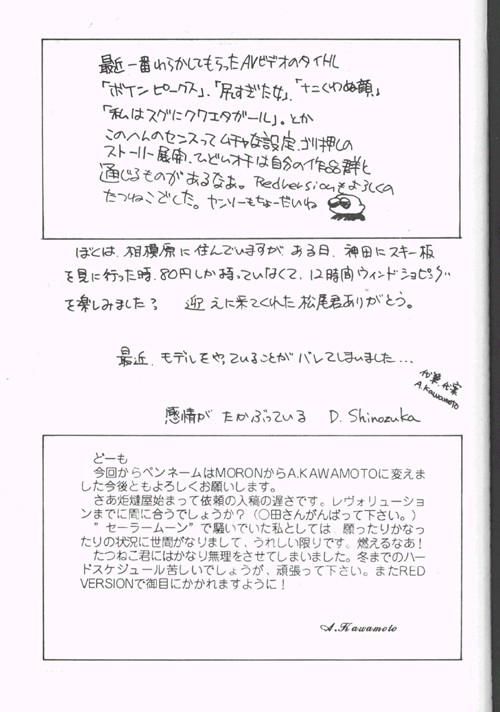 最近一番わらかしてもらったAVビデオのタイトル
「ボイン ピークス」、「尻すぎた女」、「ナニくわぬ顔」
「私はスグにクワエタガール」。とか
このへんのセンスってムチャな設定、ゴリ押しの
ストーリー展開、ひどいオチは自分の作品群と
通じるものがあるなあ。Redversionもよろしくの
たつねこでした。ヤンソーもちょーだいね
ぼくは、相模原に住んでいますが ある日、神田にスキー板
を見に行った時、80円しか持っていなくて、12時間ウィンドショピング
を楽しみました? 迎えに来てくれた松尾君ありがとう。
最近、モデルをやっていることがバレてしまいました…
代筆、代字
A.Kawamoto
感情が たかぶっている D. Shinozuka
どーも
今回からペンネームはMORONからA.KAWAMOTOに変えま
した今後ともよろしくお願いします。
さあ炬燵屋始まって依頼の入稿の遅さです。レヴォリューショ
ンまでに間に合うでしょうか?(〇田さんがんばって下さい。)
"セーラームーン"で騒いでいた私としては 願ったりかなっ
たりの状況に世間がなりまして、うれしい限りです。燃えるなあ!
たつねこ君にはかなり無理をさせてしまいました。冬までのハー
ドスケジュール苦しいでしょうが、頑張って下さい。またRED
VERSIONで御目にかかれますように!
A.Kawamoto